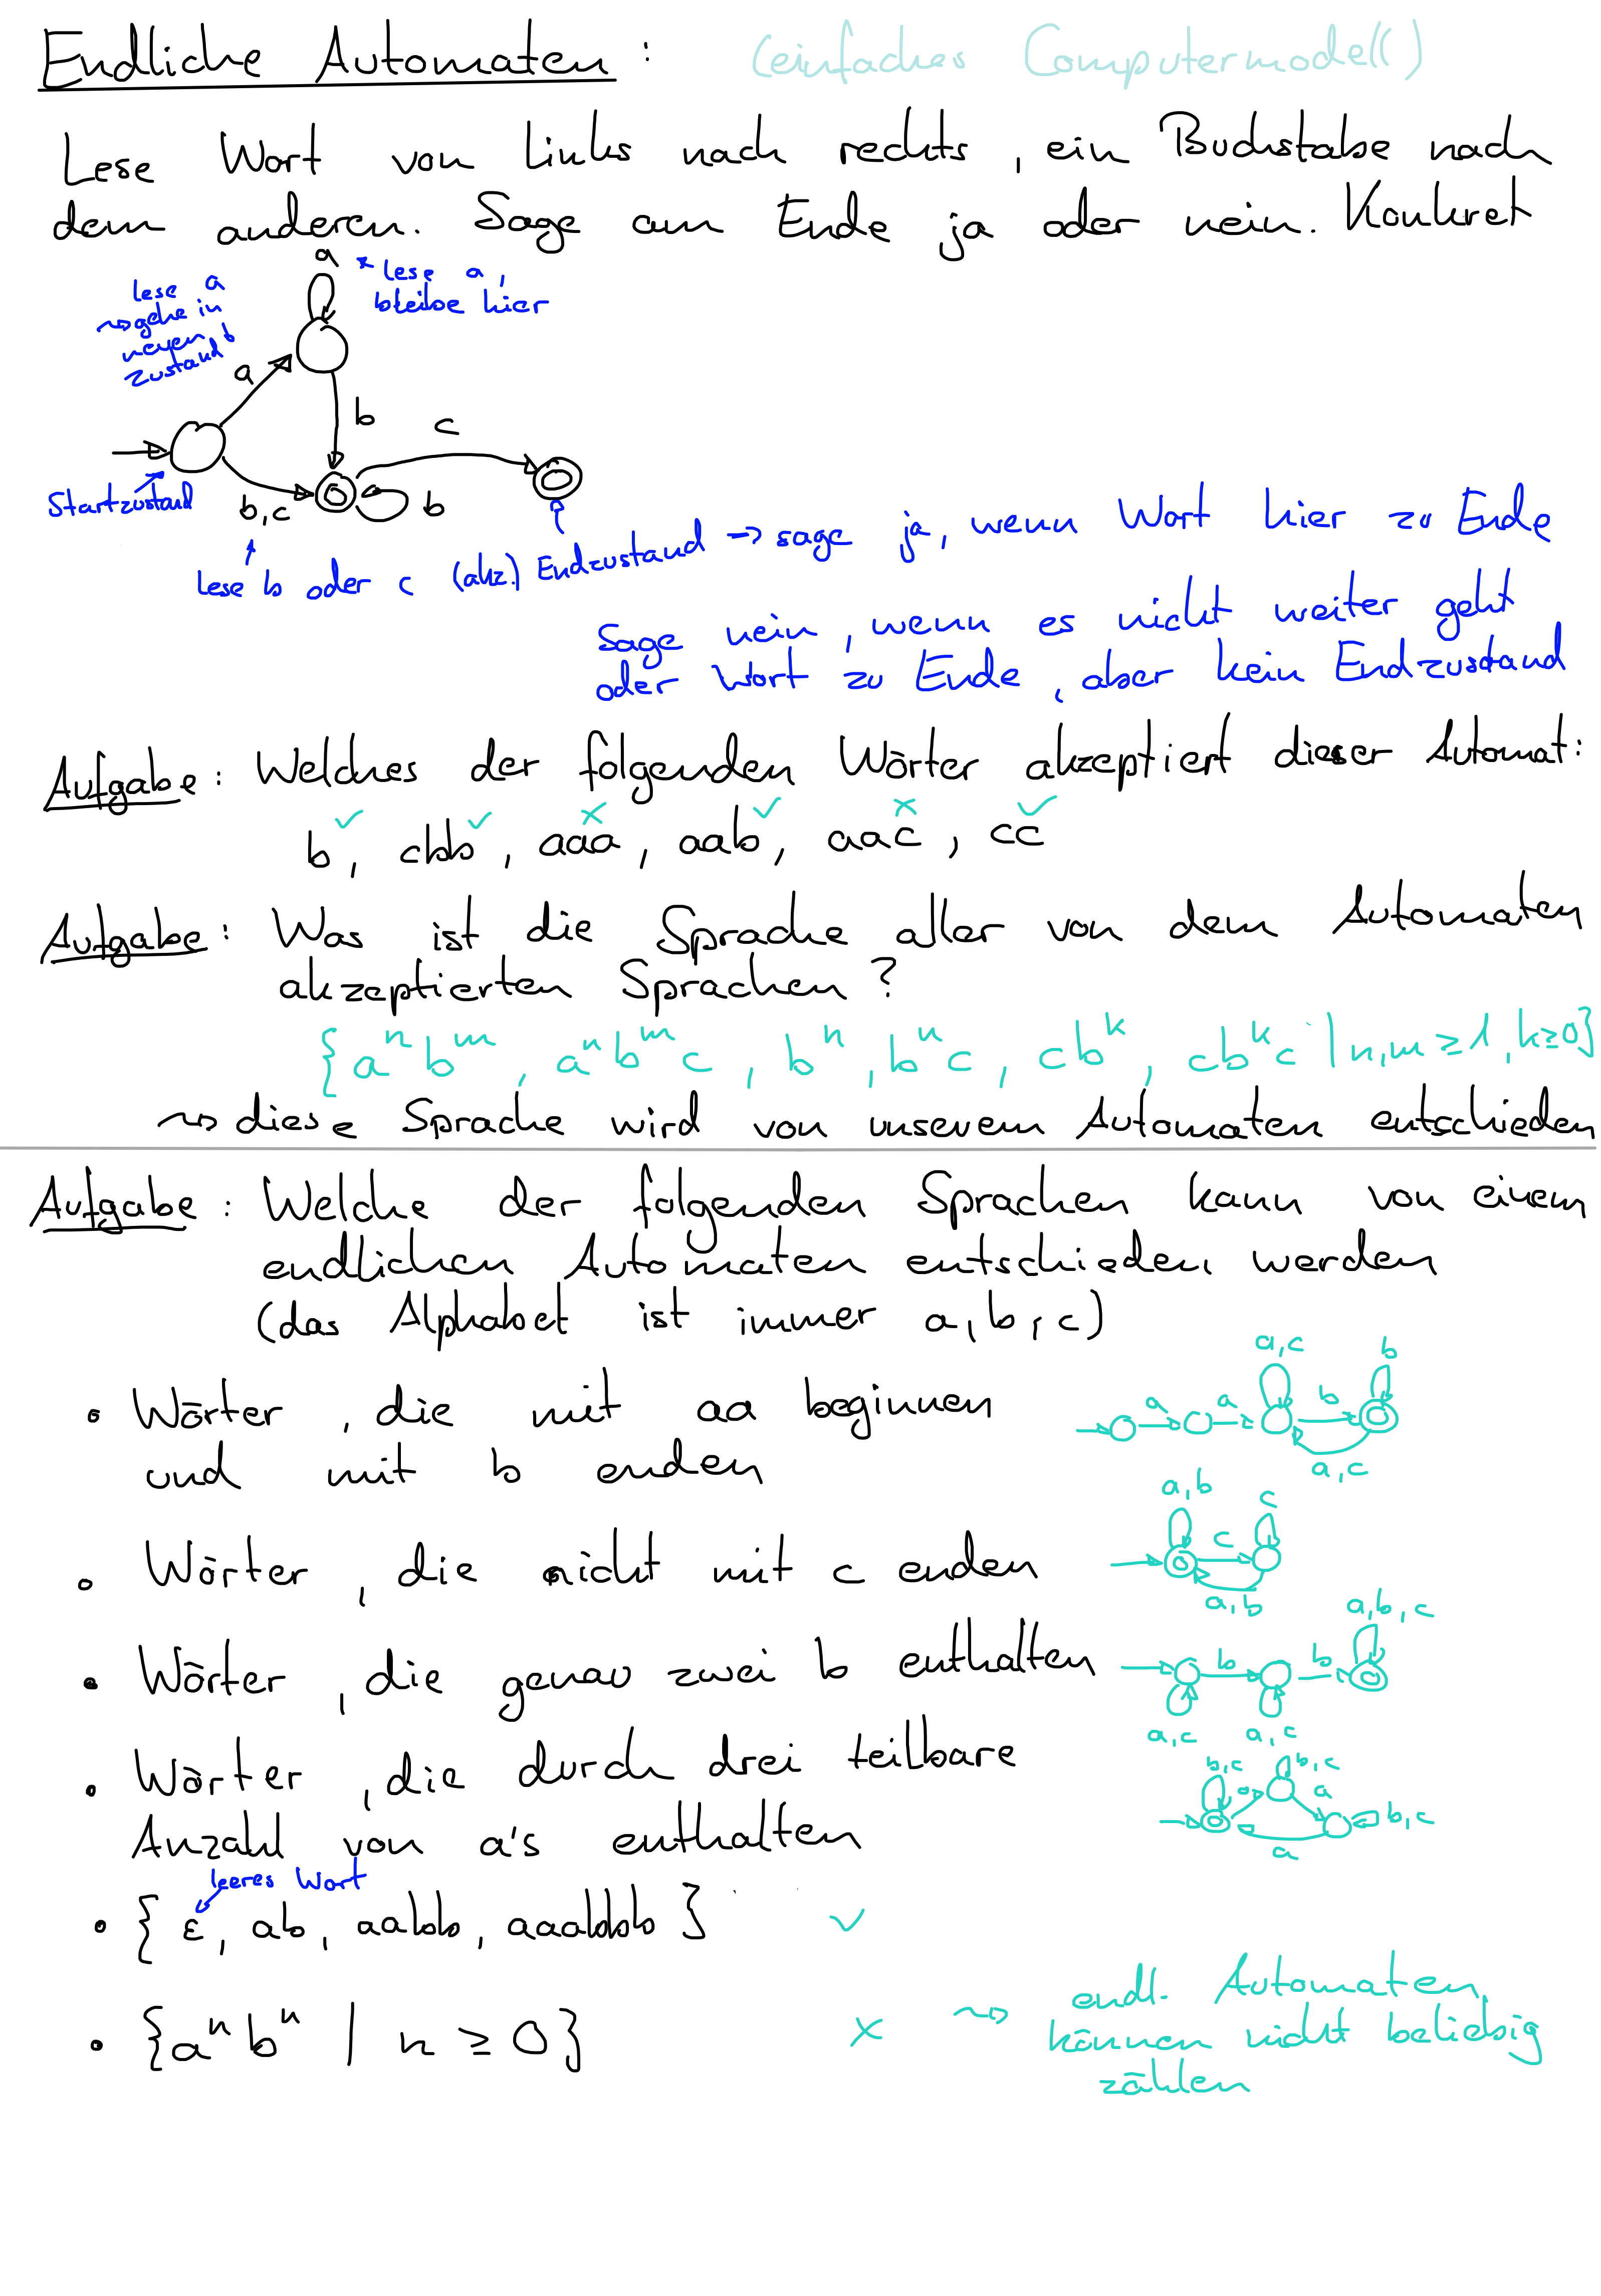 Endliche Automaten : (einfaches Computermodell)
Lese Wort von links nach rechts, ein Buchstabe nach
dem anderen. Sage am Ende ja oder nein. Konkret
lese a
⇝ gehe in
neuen
Zustand
a
lese a,
bleibe hier
a
b
c
Startzustand
b,c
b
lese b oder c
(akz.) Endzustand → sage ja, wenn Wort hier zu Ende
sage nein, wenn es nicht weiter geht
oder Wort zu Ende, aber kein Endzustand
Aufgabe: Welches der folgenden Wörter akzeptiert dieser Automat:
b ✓, cbb ✓, aaa ×, aab ✓, aac ×, cc ✓
Aufgabe: Was ist die Sprache aller von dem Automaten
akzeptierten Sprachen?
{aⁿbᵐ, aⁿbᵐc, bⁿ, bⁿc, cbᵏ, cbᵏc | n,m ≥ 1, k≥0}
⇝ diese Sprache wird von unserem Automaten entschieden
Aufgabe: Welche der folgenden Sprachen kann von einem
endlichen Automaten entschieden werden
(das Alphabet ist immer a,b,c)
• Wörter, die mit aa beginnen
und mit b enden
a a a,c b b
a,c
• Wörter, die nicht mit c enden
a,b c c
a,b
• Wörter, die genau zwei b enthalten
b b a,b,c
a,c a,c
• Wörter, die durch drei teilbare
Anzahl von a's enthalten
b,c a b,c a b,c
a
leeres Wort
• {ε, ab, aabb, aaabbb} ✓
• {aⁿbⁿ | n ≥ 0} × ⇝ endl. Automaten
können nicht beliebig
zählen